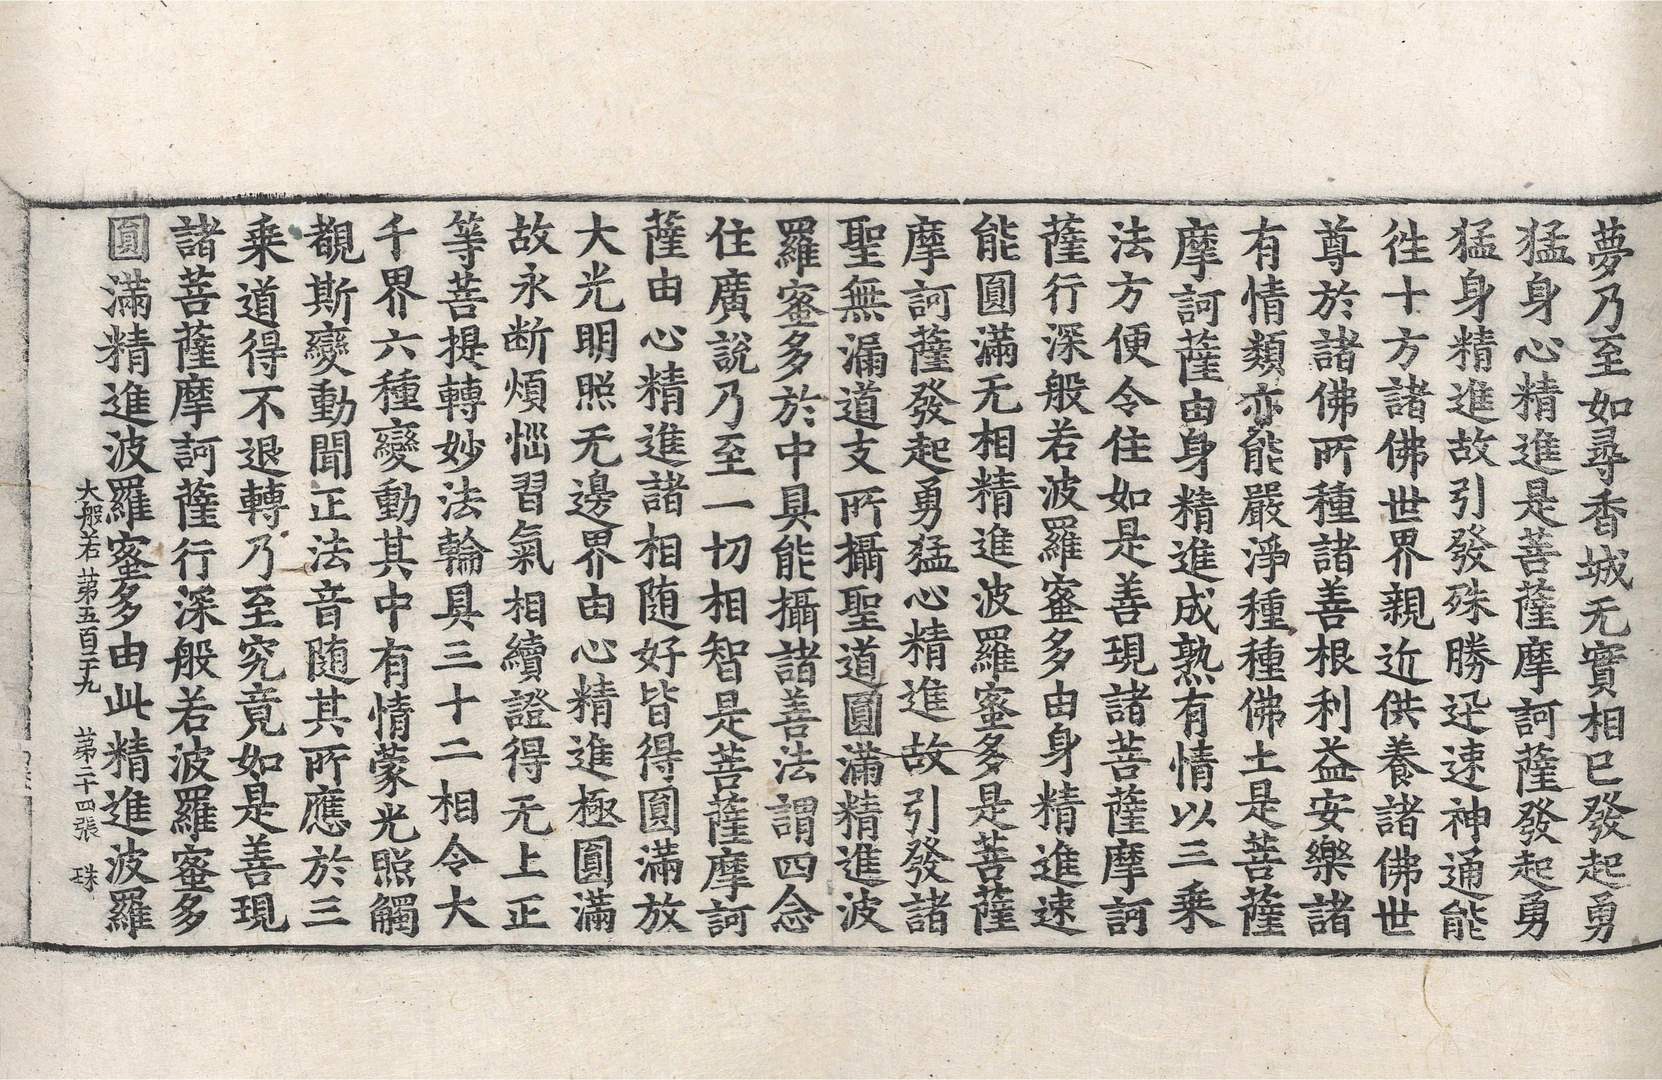 夢乃至如尋香城无實相已發起勇
猛身心精進是菩薩摩訶薩發起勇
猛身精進故引發殊勝迅速神通能
徃十方諸佛世界親近供養諸佛世
尊於諸佛所種諸善根利益安樂諸
有情類亦能嚴淨種種佛土是菩薩
摩訶薩由身精進成熟有情以三乗
法方便令住如是善現諸菩薩摩訶
薩行深般若波羅蜜多由身精進速
能圓滿无相精進波羅蜜多是菩薩
摩訶薩發起勇猛心精進故引發諸
聖無漏道支所攝聖道圓滿精進波
羅蜜多於中具能攝諸善法謂四念
住廣說乃至一切相智是菩薩摩訶
薩由心精進諸相随好皆得圓滿放
大光明照无邊界由心精進極圓滿
故永断煩惱習氣相續證得无上正
等菩提轉妙法輪具三十二相令大
千界六種變動其中有情蒙光照觸
覩斯變動聞正法音随其所應於三
乗道得不退轉乃至究竟如是善現
諸菩薩摩訶薩行深般若波羅蜜多
圓滿精進波羅蜜多由此精進波羅
大般若 苐五百二十九 苐二十四張 珠